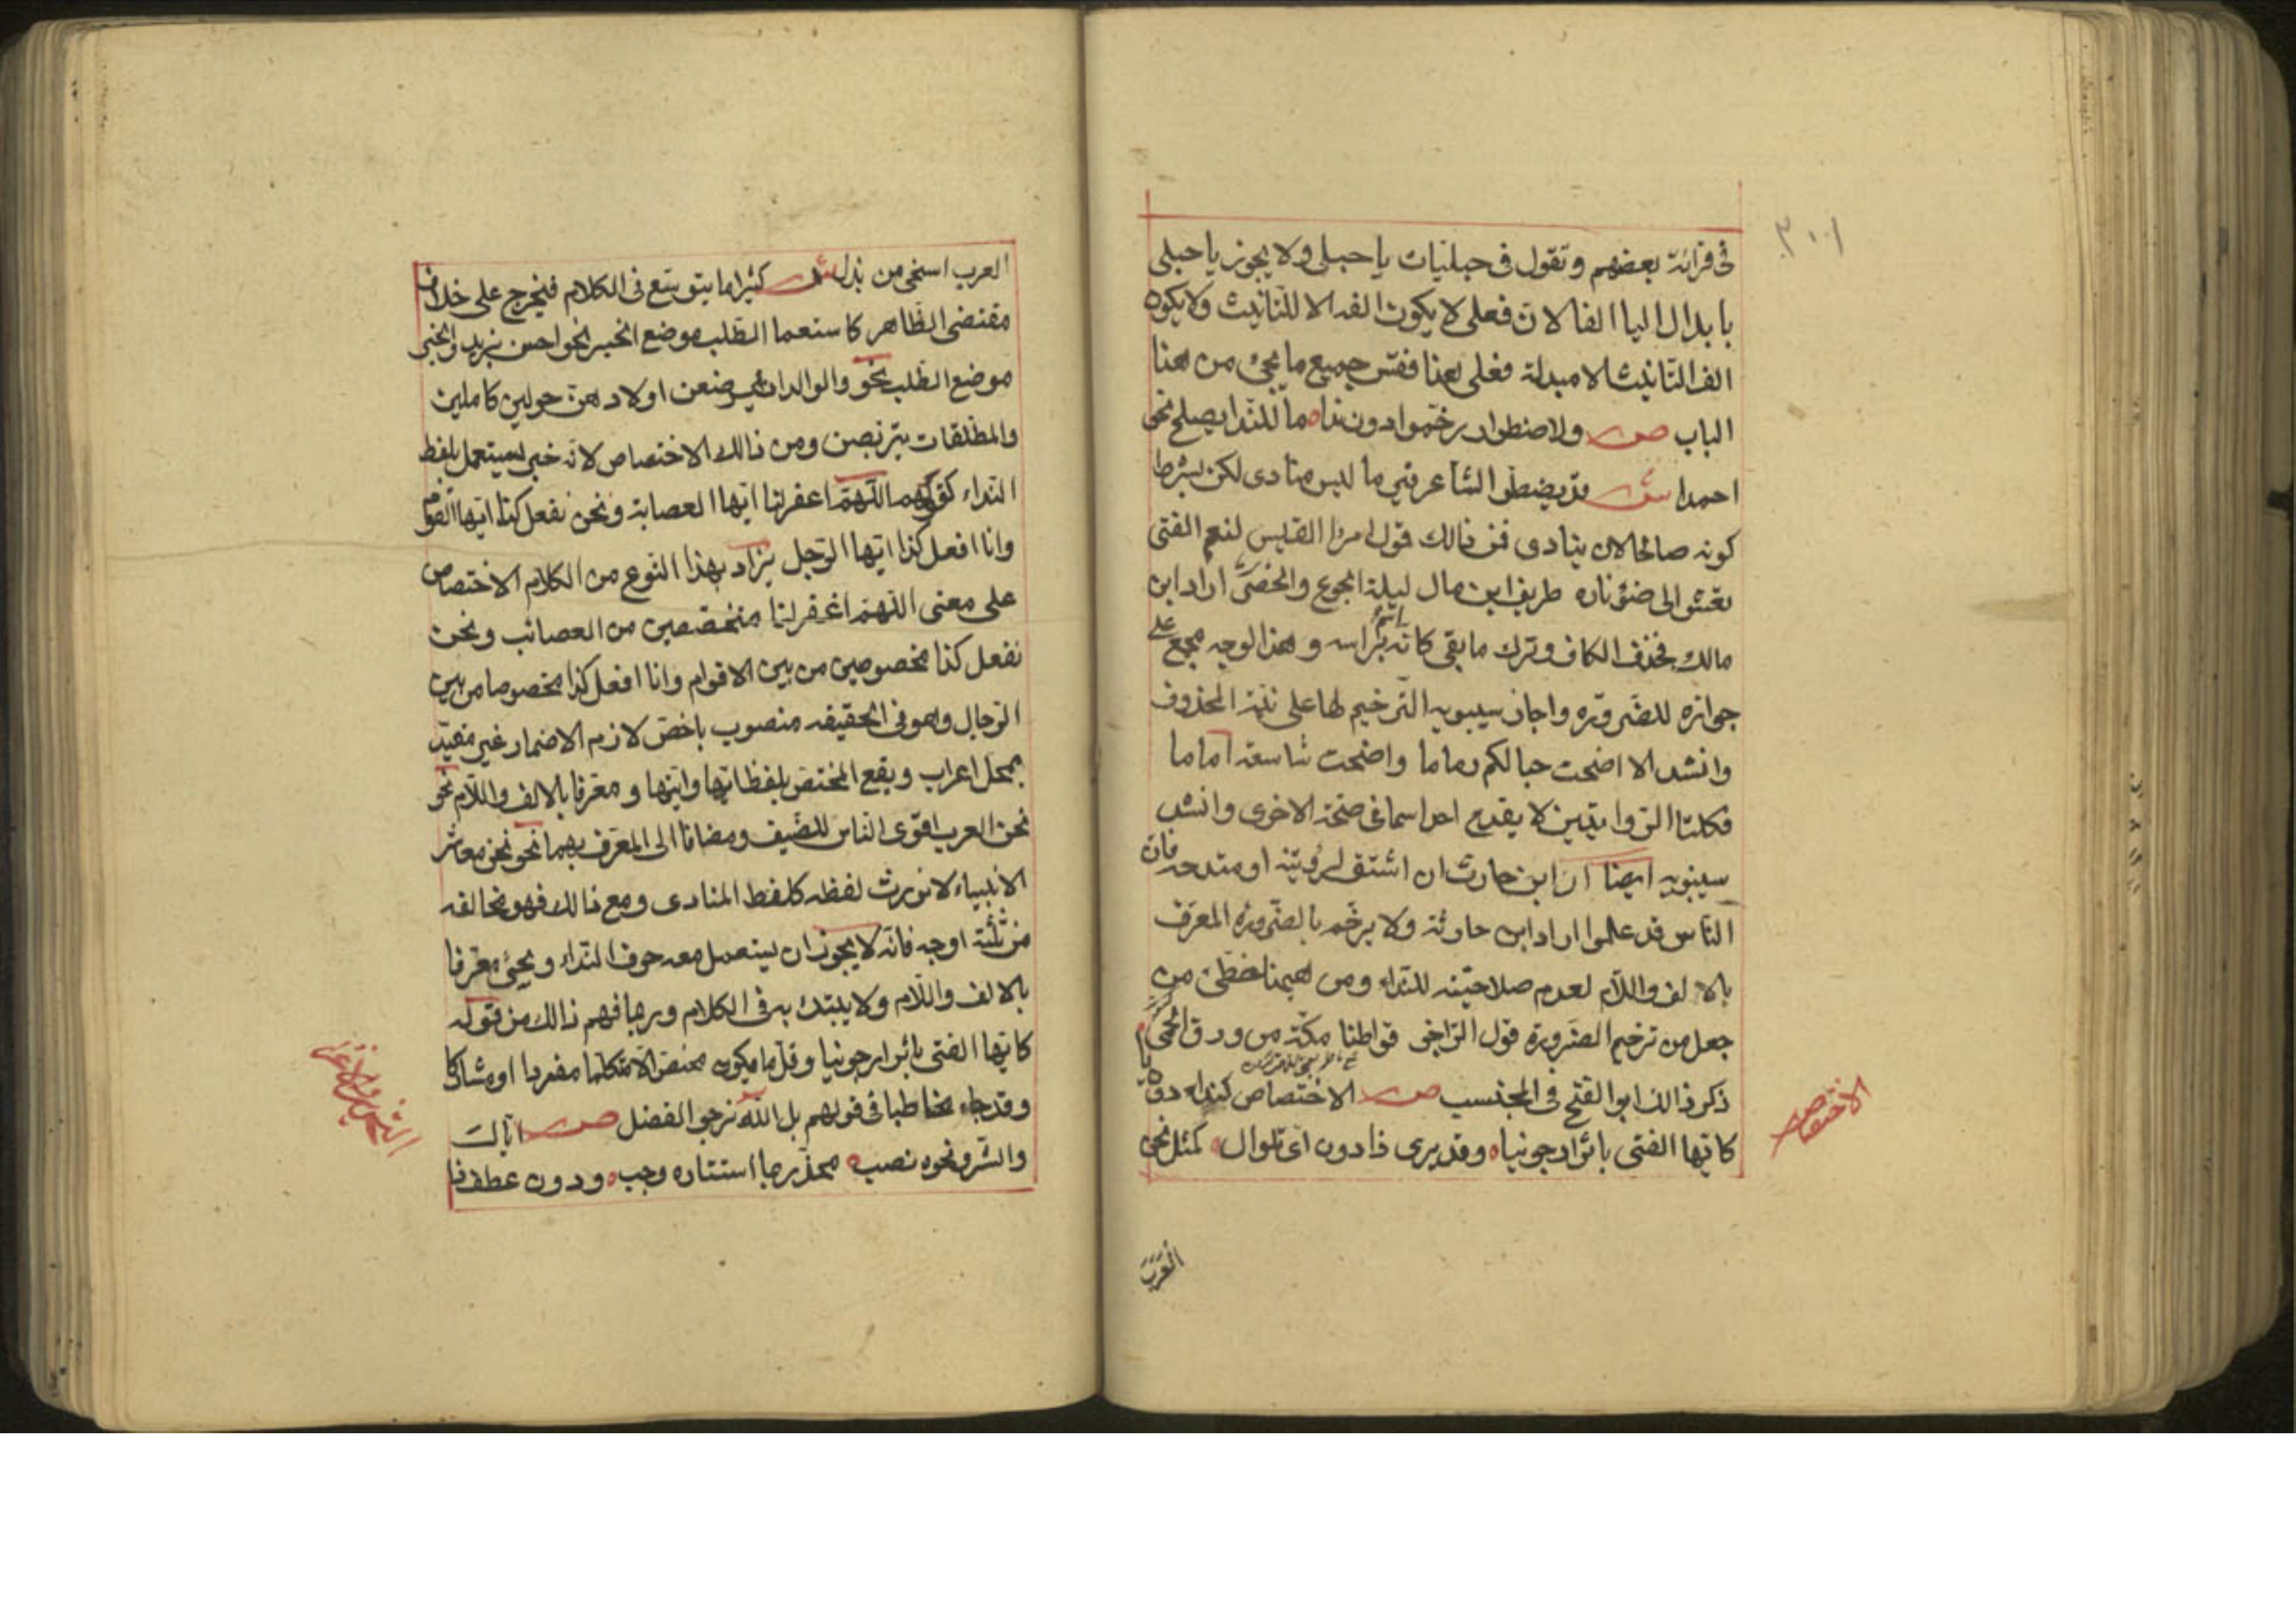 ٣٠١
فى قرائة بعضهم وتقول فى حبليات يا حبلى ولا يجوز يا حبلى
بابدال اليا الفا لان فعلى لا يكون الفه الا للتانيث ولا يكون
الف التانيث الا مبدلة فعلى هذا فقس جميع ما يجئ من هذا
الباب ص ولاضطرار رخموا دون ندا ما للندا يصلح نحو
احمدا ش قد يضطر الشاعر فيرخم ما ليس منادى لكن بشرط
كونه صالحا لان ينادى فمن ذالك قول امرا القيس لنعم الفتى
تعشو الى ضوء ناره طريف ابن مال ليلة الجوع والخصر اراد ابن
مالك فحذف الكاف وترك ما بقى كانه اسم براسه وهذا الوجه مجمع على
جوازه للضرورة واجاز سيبويه الترخيم لها على نية المحذوف
وانشد الا اضحت حبالكم رماما واضحت شاسعة اماما
فكلتا الروايتين لا يقدح احداهما فى صحة الاخرى وانشد
سيبويه ايضا ان ابن حارث ان اشتق لرؤيته او متدحه فان
الناس قد علموا اراد ابن حارثة ولا يرخم بالضرورة المعرف
بالالف واللام لعدم صلاحيته للنداء ومن ههنا خطئ من
جعل من ترخيم الضرورة قول الراجز قواطنا مكة من ورق الحمى
ذكر ذالك ابوا الفتح فى المحتسب ص الاختصاص كنداء دون يا
كايها الفتى باثر ارجونيا وقد يرى ذا دون اى تلوال كمثل نحن
الاختصاص
العرب
العرب اسخى من بذل ش كثيرا ما يتوسع فى الكلام فيخرج على خلاف
مقتضى الظاهر كاستعما الطلب موضع الخبر نحو احسن بزيد والخبر
موضع الطلب نحو والوالدات يرضعن اولادهن حولين كاملين
والمطلقات يتربصن ومن ذالك الاختصاص لانه خبر يستعمل بلفظ
النداء كقولهم اللهم اغفر لنا ايتها العصابة ونحن نفعل كذا ايها القوم
وانا افعل كذا ايها الرجل يراد بهذا النوع من الكلام الاختصاص
على معنى اللهم اغفر لنا متخصصين من العصائب ونحن
نفعل كذا مخصوصين من بين الاقوام وانا افعل كذا مخصوصا من بين
الرجال وهو فى الحقيقه منصوب باخص لازم الاضمار غير مقيد
بمحل اعراب ويقع المختص بلفظ ايها وايتها ومعرفا بالالف واللام نحو
نحن العرب اقوى الناس للضيف ومضافا الى المعرف بهما نحو نحن معاشر
الانبياء لا نورث لفظه كلفظ المنادى ومع ذالك فهو يخالفه
من ثلثة اوجه فانه لا يجوز ان يستعمل معه حرف النداء ويجئ معرفا
بالالف واللام ولا يبتدئ به فى الكلام وربما فهم ذالك من قوله
كايها الفتى باثر ارجونيا وقل ما يكون مختص الا متكلما مفردا او مشاركا
وقد جاء مخاطبا فى قولهم بك الله نرجو الفضل ص اياك
والشر ونحوه نصب محذر بما استتاره وجب ودون عطف ذا